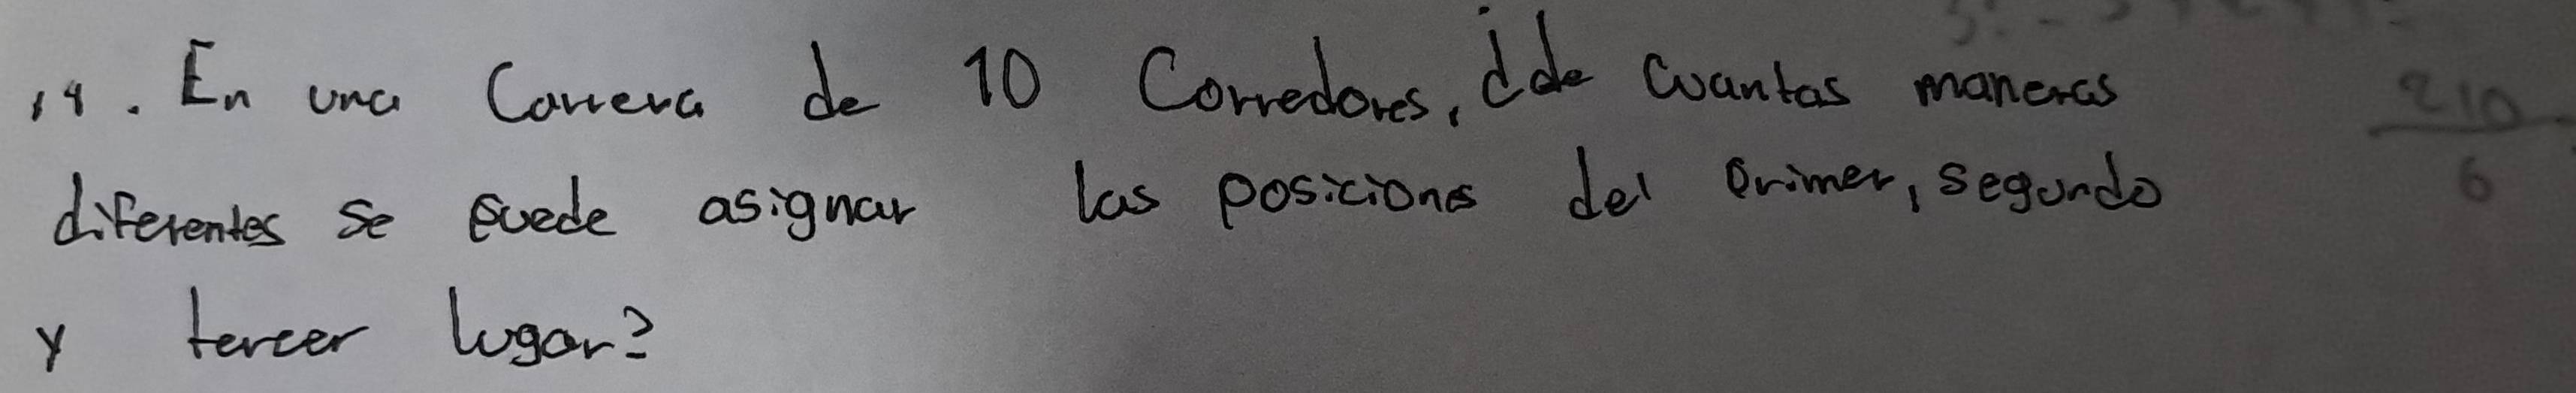 14. En una Carrera de 10 Corredores, ¿de cuantas maneras
diferentes se puede asignar las posiciones del primer, segundo
y tercer lugar?
210
6